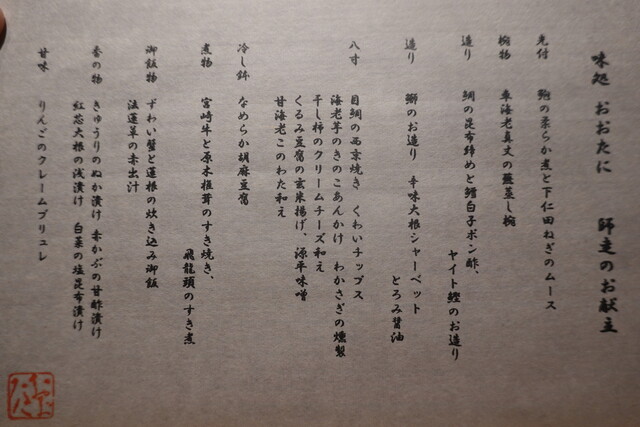 味処 おおたに 師走のお献立
先付 鮑の柔らか煮と下仁田ねぎのムース
椀物 車海老真丈の蕪蒸し椀
造り 鯛の昆布締めと鱈白子ポン酢、
ヤイト鰹のお造り
造り 鰤のお造り 辛味大根シャーベット
とろみ醤油
八寸 目鯛の西京焼き くわいチップス
海老芋のきのこあんかけ わかさぎの燻製
干し柿のクリームチーズ和え
くるみ豆腐の玄米揚げ、源平味噌
甘海老このわた和え
冷し鉢 なめらか胡麻豆腐
煮物 宮崎牛と原木椎茸のすき焼き、
飛龍頭のすき煮
御飯物 ずわい蟹と蓮根の炊き込み御飯
法蓮草の赤出汁
香の物 きゅうりのぬか漬け 赤かぶの甘酢漬け
紅芯大根の浅漬け 白菜の塩昆布漬け
甘味 りんごのクレームブリュレ